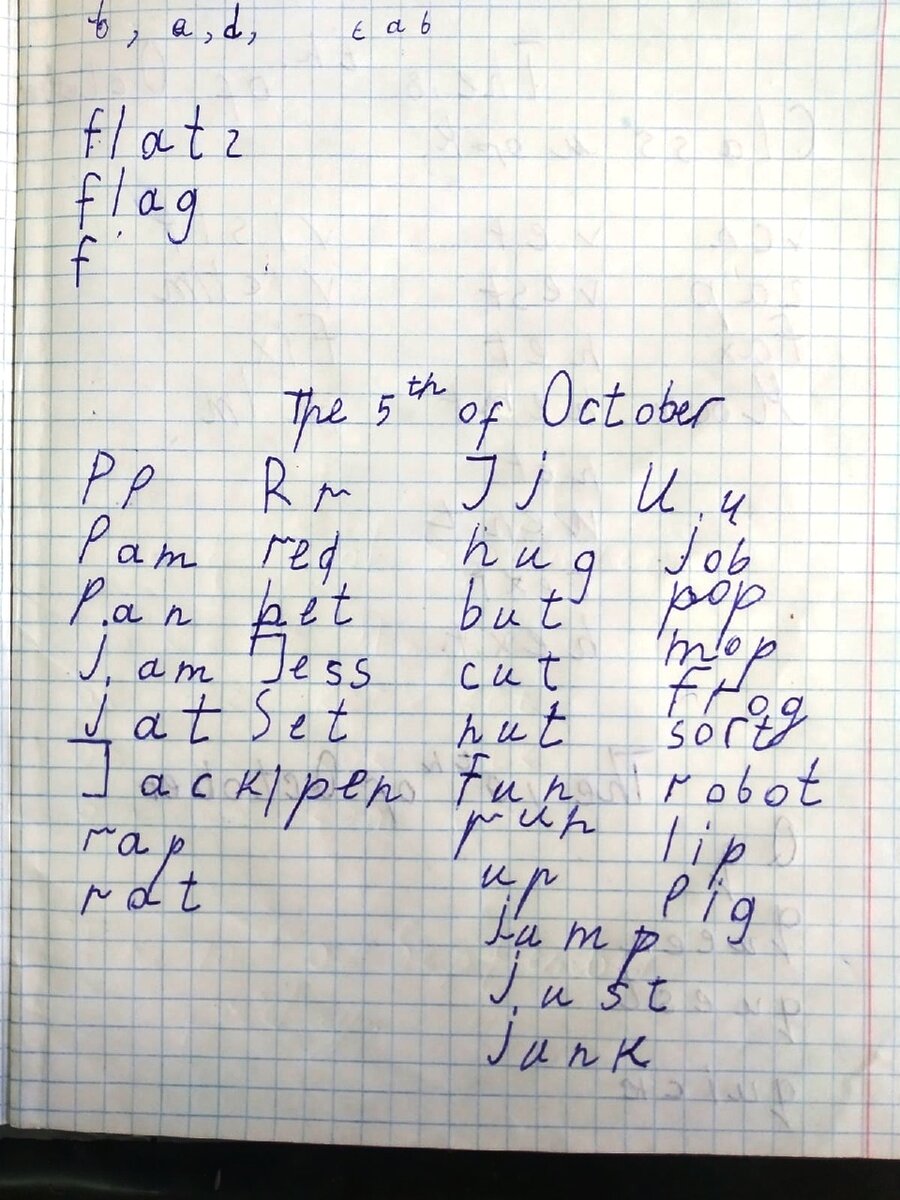 b, a, d, c a b
flat 2
flag
f
The 5th of October
Pp Rr Jj U.u
Pam red hug job
P.an bet but pop
J.am Jess cut mop
jat Set nut frog
Jack/pen fun sort
rap run robot
rat up lip
jump Pig
j.ust
junk